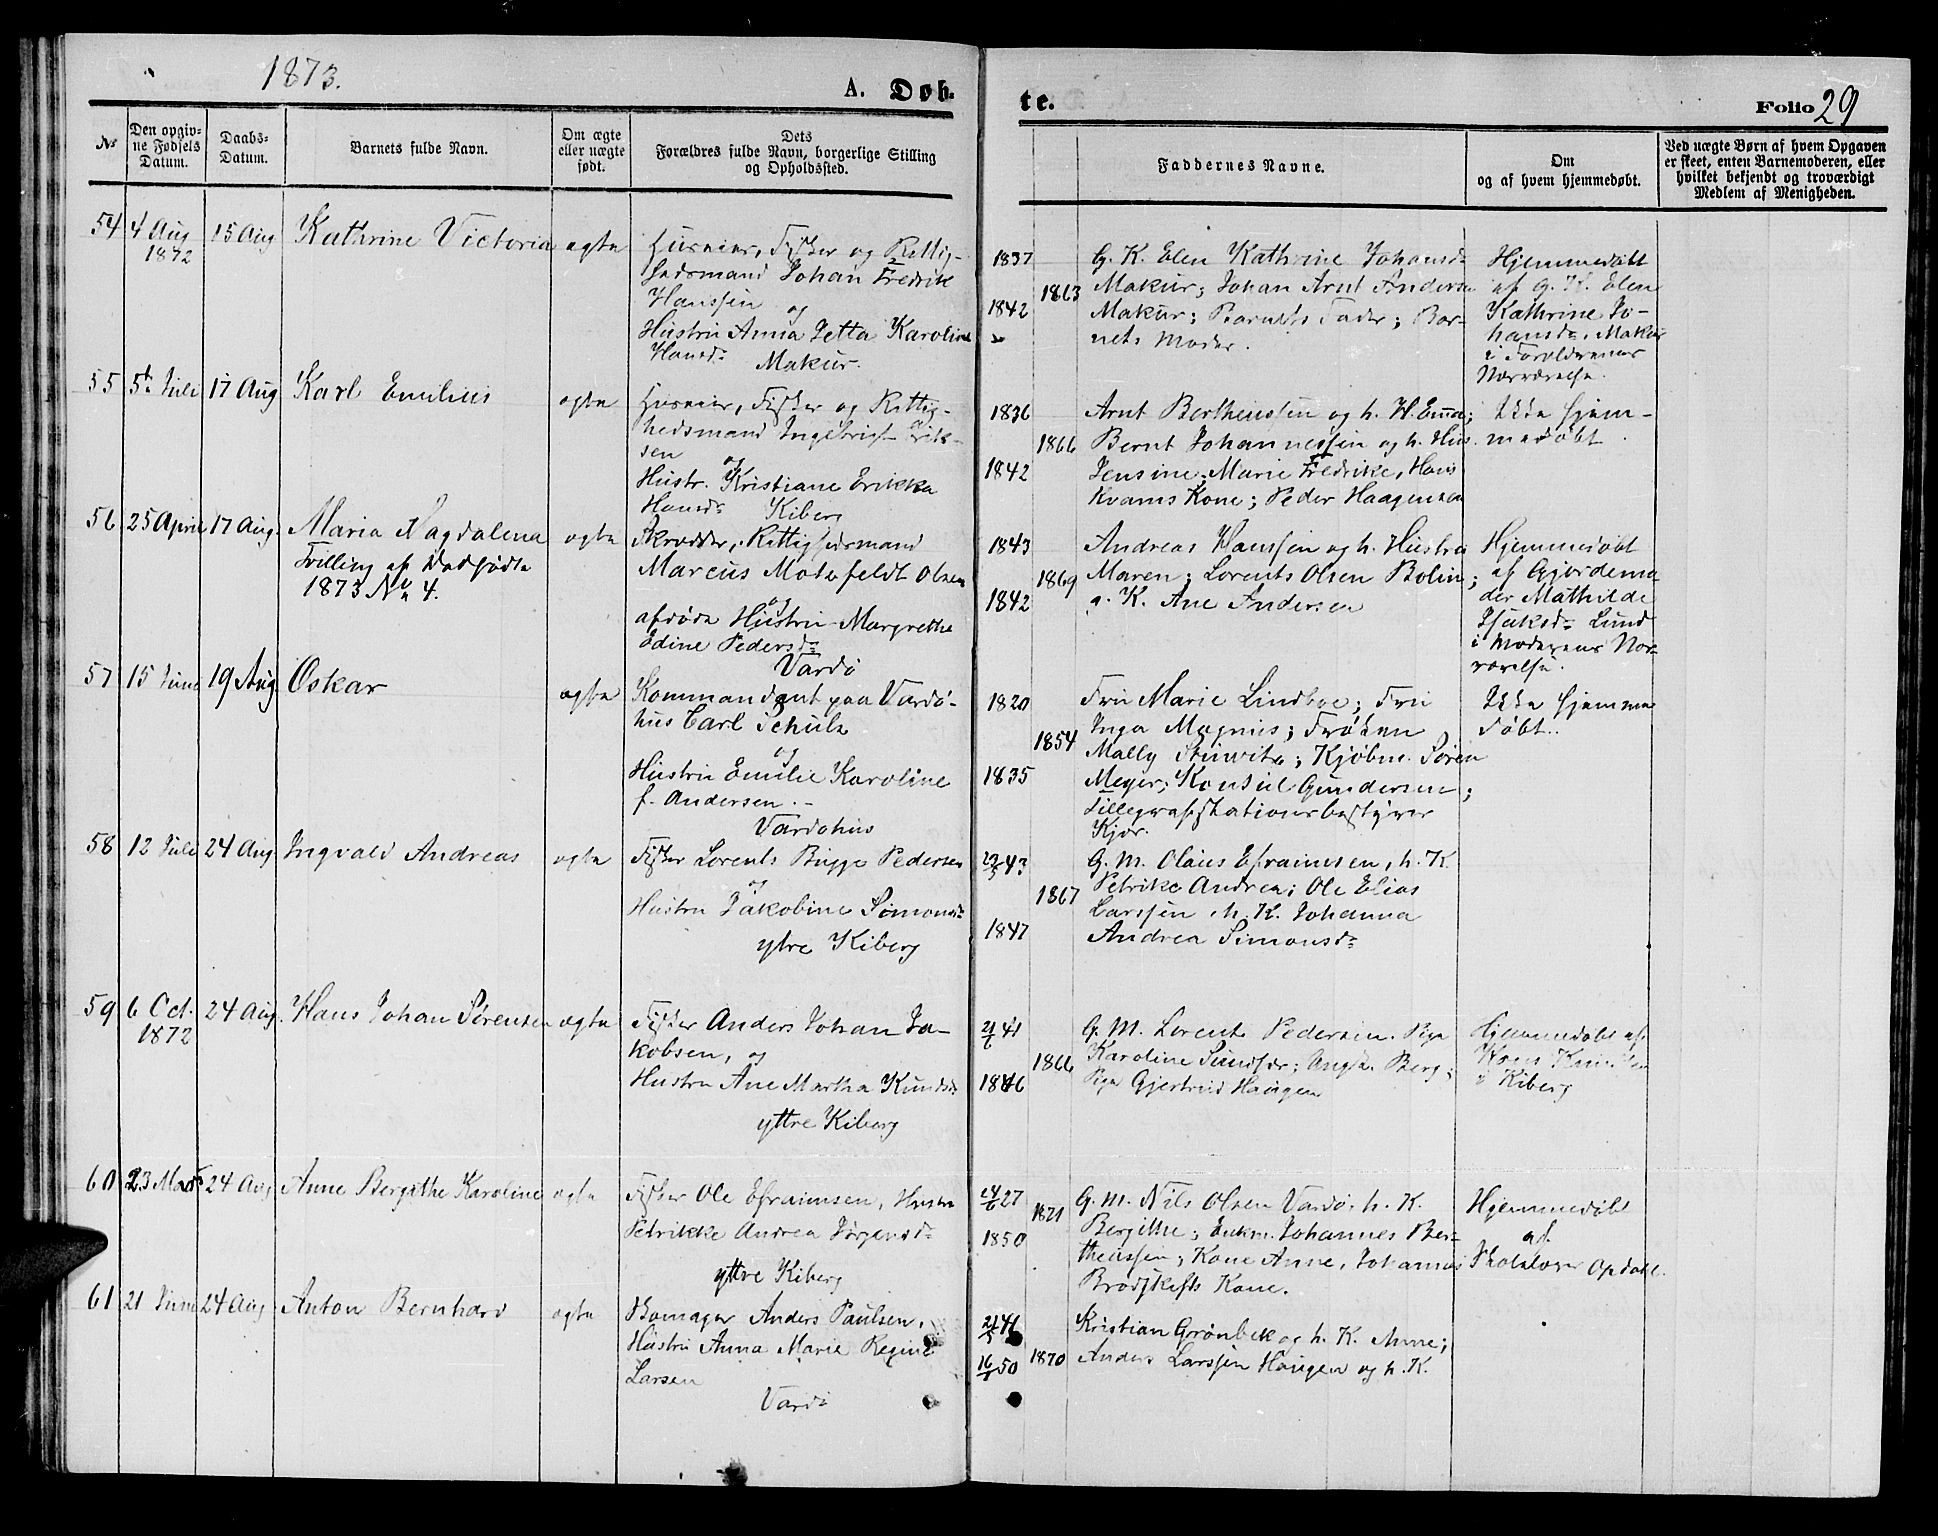 1873.
A. Døb-
te.
Folio 29
No
Den opgiv-
ne Fødsels
Datum.
Daabs-
Datum.
Barnets fulde Navn.
Om ægte
eller uægte
født.
Dets
Forældres fulde Navn, borgerlige Stilling
og Opholdssted.
Faddernes Navne.
Om
og af hvem hjemmedøbt.
Ved uægte Børn af hvem Opgaven
er skeet, enten Barnemoderen, eller
hvilket bekjendt og troværdigt
Medlem af Menigheden.
54
4 Aug
1872
15 Aug
Kathrine Victoria
ægte
Huseier, Fisker og Rettig-
hedsmand Johan Fredrik
Hanssen
og
Hustru Anna Jetta Karoline
Hansd:
Makur.
1837
1863
1842
G. K. Elen Kathrine Johansd:
Makur; Johan Arnt Anders
Makur; Barnets Fader; Bar-
nets Moder.
Hjemmedøbt
af G. K. Elen
Kathrine Jo-
hansd: Makur
i Forældrenes
Nærværelse.
55
5te Juli
17 Aug
Karl Emilius
ægte
Huseier, Fisker og Rettig-
hedsmand Ingebrigt Erik-
sen
og
Hustr. Kristiane Erikka
Hansd: Kiberg
1836
1866
1842
Arnt Bertheussen og h. H. Ema;
Bernt Johannessen og h. Hus.
Jensine Marie Fredrike, Hans
Kvams Kone; Peder Haagensen
Ikke hjem-
medøbt.
56
25 April
17 Aug.
Maria Magdalena
Tvilling af Dødfødte
1873 No 4.
ægte
Skrædder, Rettighedsmand
Marcus Motzfeldt Olsen
og
afdøde Hustru Margrethe
Edine Pedersd:
Vardø
1843
1869
1842
Andreas Hanssen og h. Hustru
Maren; Lorents Olsen Bolin;
g. K. Ane Andersen
Hjemmedøbt
af Gjordemo
der Mathilde
Isaksd: Lund
i Moderens Nær-
værelse.
57
15 Juni
19 Aug.
Oskar
ægte
Kommandant paa Vardø-
hus Carl Schulz
og
Hustru Emilie Karoline
f. Andersen.-
Vardøhus
1820
1854
1835
Fru Marie Lindboe; Fru
Inga Magnus; Frøken
Mally; Kjøbm. Søren
Meyer; Konsul Gundersen;
Tillegrafstationsbestyrer
Kjær.
Ikke hjemme
døbt..
58
12 Juli
24 Aug
Ingvald Andreas
ægte
Fisker Lorents Bugge Pedersen
og
Hustru Jakobine Simonsd:
ytre Kiberg
43
1867
1847
G. M. Olaus Efraimsen, h. K.
Petrike Andrea; Ole Elias
Larssen, h. K. Johanna
Andrea Simonsd:
59
6 Oct.
1872
24 Aug.
Hans Johan Sørensen
ægte
Fisker Anders Johan Ja-
kobsen, og
Hustru Ane Martha Knudsd:
yttre Kiberg
21/6 41
1866
1846
G. M. Lorents Pedersen. Pige
Karoline Sundfær; Ungk. Berg;
Pige Gjertrud Haugen
Hjemmedøbt af
i Kiberg
60
23 Mars
24 Aug
Anne Bergithe Karoline
ægte
Fisker Ole Efraimsen, Hustru
Petrikke Andrea Jørgensd:
yttre Kiberg
27
1871
1850
G. M. Nils Olsen Vardø, h. K.
Bergithe; Enkm. Johannes Ber-
theussen; Kone Anne, Johannes
Brodtkofts Kone.
Hjemmedøbt
af
Skolelærer Opdahl.
61
21 Juni
24 Aug
Anton Bernhard
ægte
Bomager Anders Paulsen,
Hustru Anna Marie Regine
Larsen
Vardø
41
50
1870
Kristian Grønbek og h. K. Anne;
Anders Larssen Haugen og h. K.